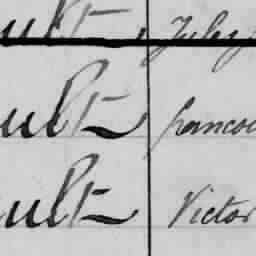 ult July
ult francoi
ult Victor